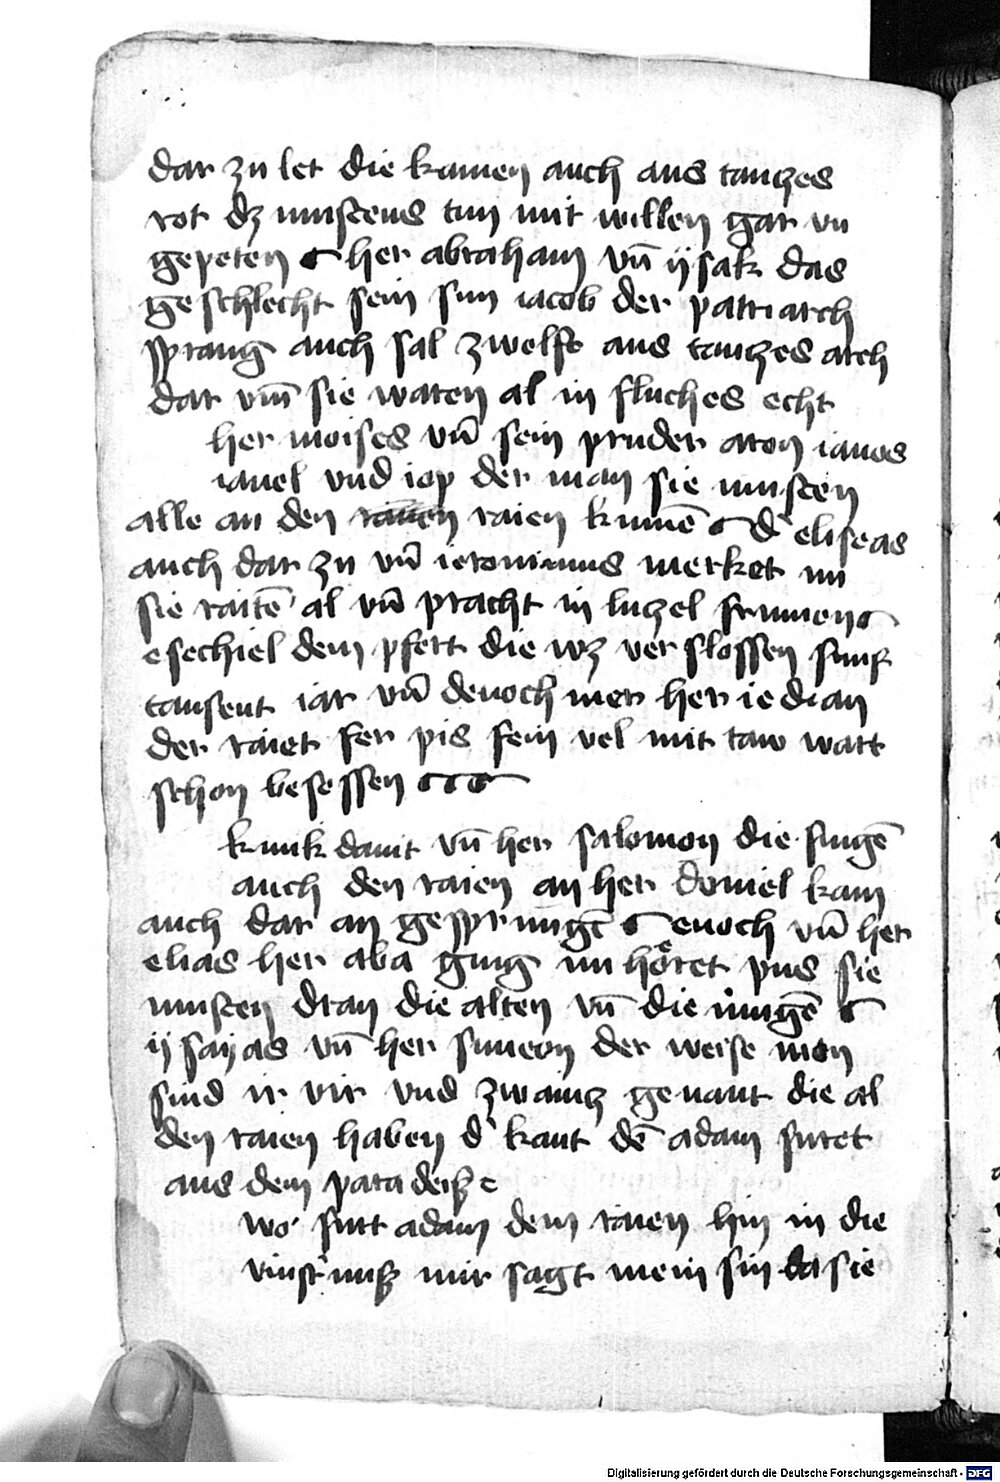 dar zu let die kamen auch aus tanczes
rot dz mustens tun mit willen gar vn
gepeten her abraham vn̄ ysak das
geschlecht sein sun iacob der patriarch
sprang auch sal zwelfe aus tanczes arch
dar vm̄ sie waren al in fluches echt
her moises vn̄ sein pruder aron ianes
iauel vnd iop der man sie musten
alle an den raien kumē d' eliseas
auch dar zu vn̄ ieronimus merket nu
sie raitē al vn̄ pracht in luczel frumen
esechiel dem pfert die wz verslossen funf
tausent iar vn̄ denoch mer her iedian
der raiet fer pis sein vel mit taw wart
schon besessen
kunik dauit vn̄ her salomon die sungē
auch den raien an her doniel kam
auch dar an gesprungē enoch vn̄ her
elias her aba ging nu hoͤret pus sie
musten dran die alten vn̄ die iungē
ysayas vn̄ her simeon der weise mon
sind ir vir vnd zwaincz genant die al
den raien haben d' kant dē adam furet
aus dem paradeiß
wo furt adam dem raien hin in die
vinst'nuß mir sagt mein sin da sie
Digitalisierung gefördert durch die Deutsche Forschungsgemeinschaft - DFG